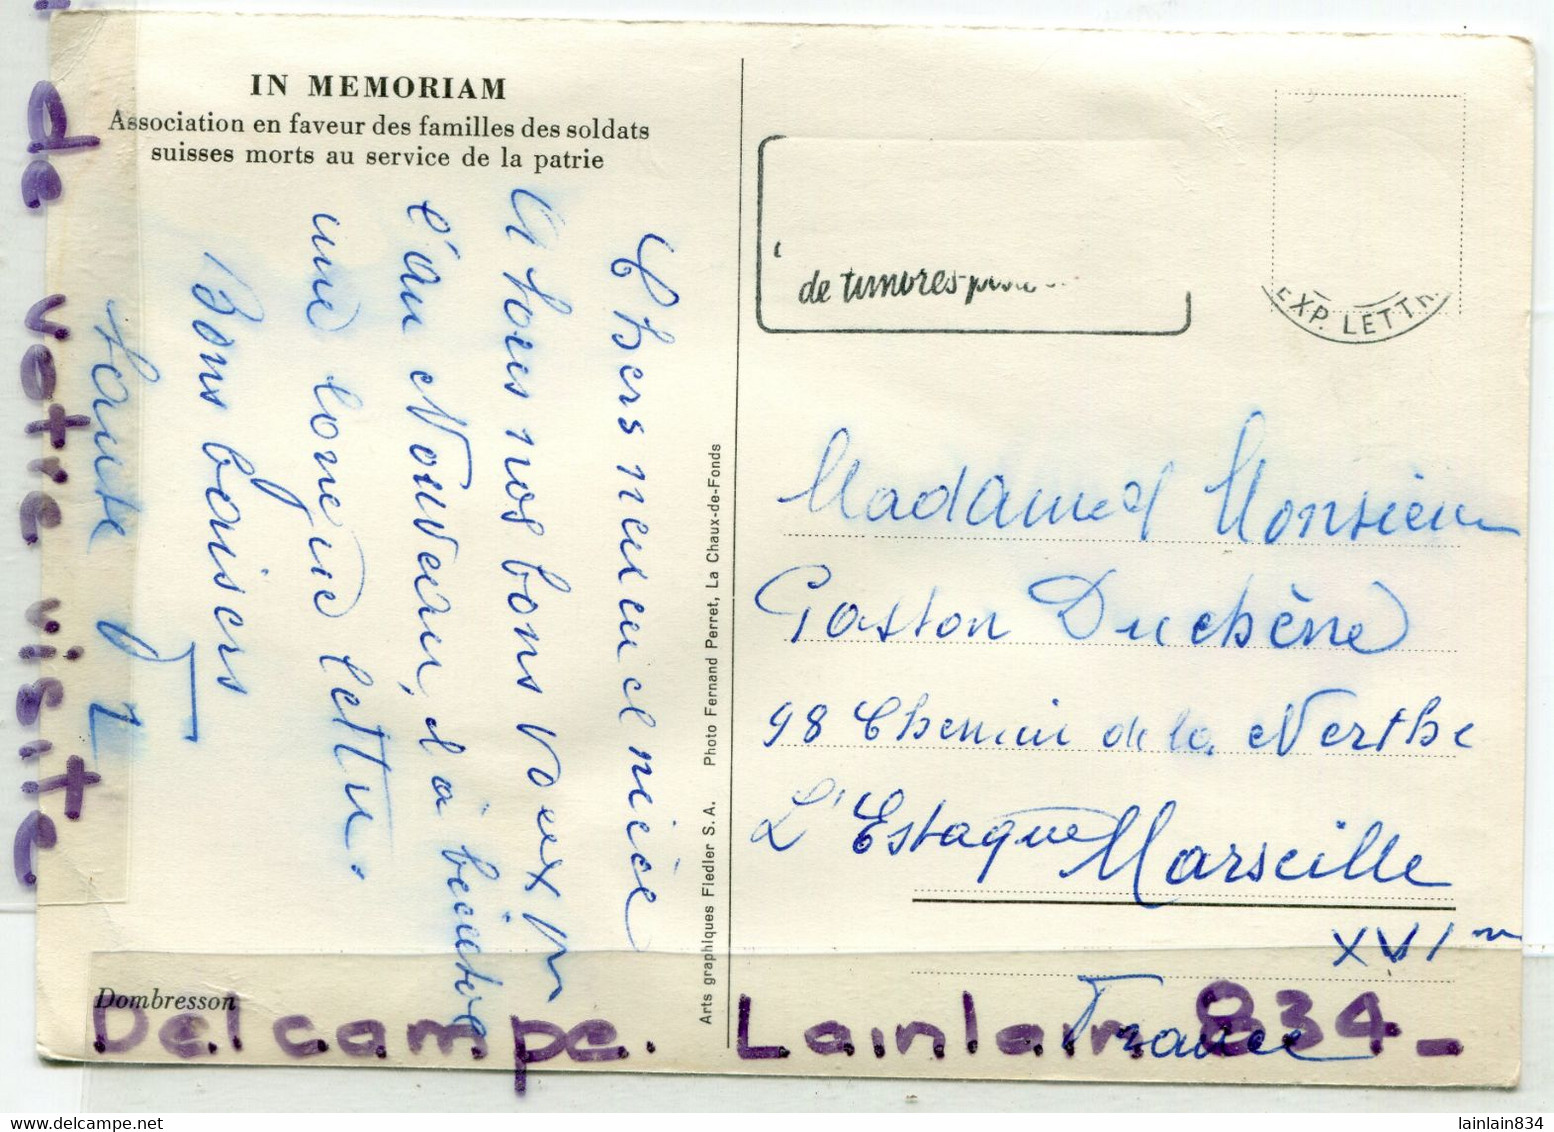 IN MEMORIAM
Association en faveur des familles des soldats
suisses morts au service de la patrie
Chers neveu et nièce
A tous nos bons vœux pr
l'an Nouveau, et à bientot
une longue lettre.
Bons baisers
tante
Dombresson
Arts graphiques Fiedler S. A. Photo Fernand Perret, La Chaux-de-Fonds
de timbres-pos
EXP. LETTR
Madame et Monsieur
Gaston Duchêne
98 Chemin de la Nerthe
L'Estaque Marseille
XVI m
France
de votre visite
Delcampe. Lainlain 834_
lainlain834